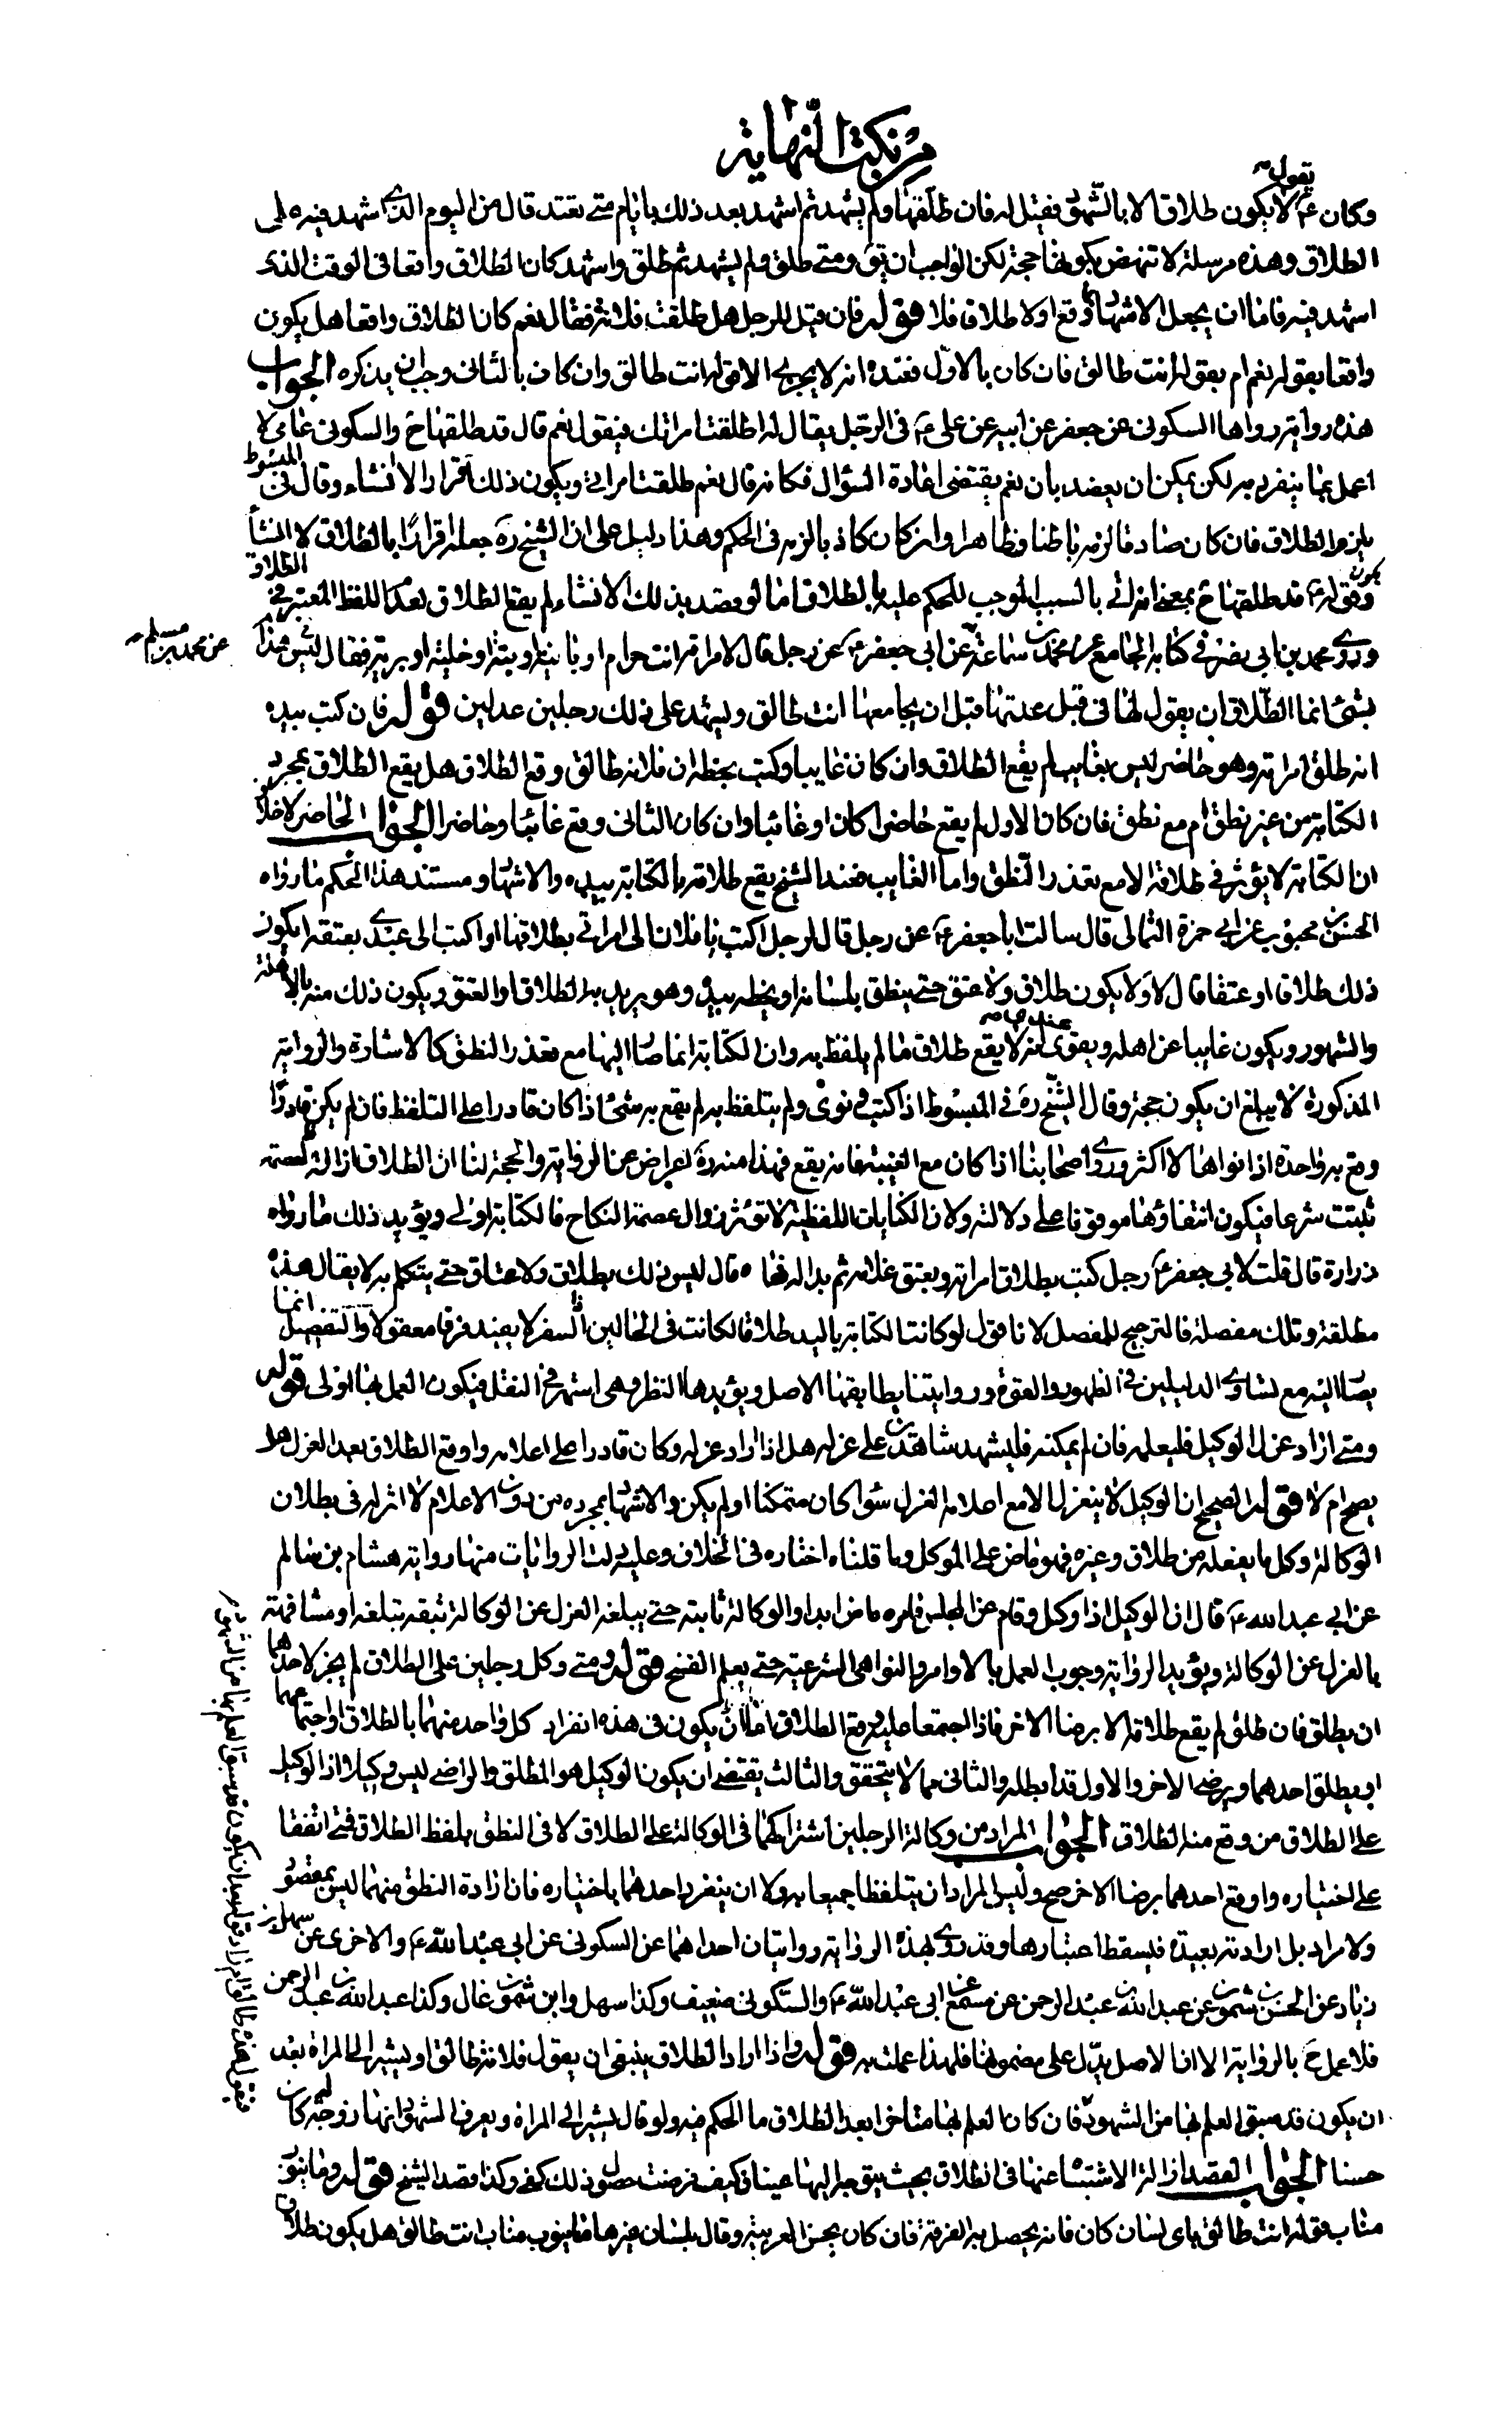 من نكت النهاية
يقول
وكان ع لا يكون طلاق الا بالشهود فقيل له فان طلقها ولم يشهد ثم اشهد بعد ذلك بايام متى تعتد قال من اليوم الذي اشهد فيه على
الطلاق وهذه مرسلة لا تنهض بكونها حجة لكن الواجب ان يق ومتى طلق ولم يشهد ثم طلق واشهد كان الطلاق واقعا في الوقت الذي
اشهد فيه فاما ان يجعل الاشهاد وقع اولا طلاق فلا قوله فان قيل للرجل هل طلقت فلانة فقال نعم كان الطلاق واقعا هل يكون
واقعا بقوله نعم ام بقوله انت طالق فان كان بالاول فعنده انه لا يجري الا قوله انت طالق وان كان بالثاني وجب ان يذكره الجواب
هذه رواية رواها السكوني عن جعفر عن ابيه عن علي ع في الرجل يقال له اطلقت امراتك فيقول نعم قال قد طلقها ح والسكوني عامي لا
اعمل بما ينفرد به لكن يمكن ان يعضد بان نعم يقتضي اعادة السؤال فكانه قال نعم طلقت امراتي ويكون ذلك اقرارا لا انشاء وقال في المبسوط
يلزمه الطلاق فان كان صادقا لزمه باطنا وظاهرا وان كان كاذبا لزمه في الحكم وهذا دليل على ان الشيخ ره جعله اقرارا بالطلاق لا انشأ
وقوله ع قد طلقها ح بمعنى انه اتى بالسبب الموجب للحكم عليه بالطلاق اما لو قصد بذلك الانشاء لم يقع الطلاق لعدم اللفظ المعتبر في الطلاق
وروى محمد بن ابي نصر في كتابه الجامع عن محمد بن سماعة عن ابي جعفر ع عن رجل قال لامراته انت حرام او باينة او بتة او خلية او برية فقال ليس هذا
عن محمد بن مسلم
بشئ انما الطلاق ان يقول لها في قبل عدتها قبل ان يجامعها انت طالق ويشهد على ذلك رجلين عدلين قوله فان كتب بيده
انه طلق امراته وهو حاضر ليس بغايب لم يقع الطلاق وان كان غايبا وكتب بخطه ان فلانة طالق وقع الطلاق هل يقع الطلاق بمجرد
الكتابة من غير نطق ام مع نطق فان كان الاول لم يقع حاضرا كان او غائبا وان كان الثاني وقع غائبا وحاضرا الجواب الحاضر لا خلاف
ان الكتابة لا يؤثر في طلاقه الا مع تعذر النطق واما الغايب فعند الشيخ يقع طلاقه بالكتابة بيده والاشهاد ومستند هذا الحكم ما رواه
الحسن بن محبوب عن ابي حمزة الثمالي قال سالت ابا جعفر ع عن رجل قال لرجل اكتب يا فلان الى امراتي بطلاقها او اكتب الى عبدي بعتقه ايكون
ذلك طلاقا او عتقا قال لا ولا يكون طلاق ولا عتق حتى ينطق بلسانه او يخطه بيده وهو يريد به الطلاق او العتق ويكون ذلك منه بالاهلة
والشهور ويكون غايبا عن اهله ويقوى انه لا يقع طلاق ما لم يلفظ به وان الكتابة انما صار اليها مع تعذر النطق كالاشارة والرواية
المذكورة لا يبلغ ان يكون حجة وقال الشيخ ره في المبسوط اذا كتب ونوى ولم يتلفظ به لم يقع به شئ اذا كان قادرا على التلفظ فان لم يكن قادرا
وقع به واحدة اذا نواها لا اكثر وروى اصحابنا اذا كان مع الغيبة فانه يقع فهذا منه ره اعراض عن الرواية والحجة لنا ان الطلاق ازالة لعصمة
ثبتت شرعا فيكون انتفاؤها موقوفا على دلالته ولان الكنايات اللفظية لا تؤثر زوال عصمة النكاح فالكتابة اولى ويؤيد ذلك ما رواه
زرارة قال قلت لابي جعفر ع رجل كتب بطلاق امراته وبعتق غلامه ثم بدا له فمحاه قال ليس ذلك بطلاق ولا عتاق حتى يتكلم به لا يقال هذه
مطلقة وتلك مفصلة فالترجيح للمفصل لانا نقول لو كانت الكتابة باليد طلاقا لكانت في الحالين اذ السفر لا يفيد فرقا معقولا والتفصيل انما
يصار اليه مع تساوي الدليلين في الظهور والقوة وروايتنا يطابقها الاصل ويؤيدها النظر وهي اشهر في النقل فيكون العمل بها اولى قوله
ومتى اراد عزل الوكيل فليعلمه فان لم يمكنه فليشهد شاهدين على عزله هل اذا اراد عزله وكان قادرا على اعلامه واوقع الطلاق بعد العزل هل
يصح ام لا قوله الصحيح ان الوكيل لا ينعزل الا مع اعلامه العزل سواء كان متمكنا او لم يكن والاشهاد بمجرده من دون الاعلام لا اثر له في بطلان
الوكالة وكل ما يفعله من طلاق وغيره فهو ماض على الموكل وما قلناه اختاره في الخلاف وعليه دلت الروايات منها رواية هشام بن سالم
عن ابي عبد الله ع قال ان الوكيل اذا وكل وقام عن المجلس فامره ماض ابدا والوكالة ثابتة حتى يبلغه العزل عن الوكالة بثقة يبلغه او مشافهة
بالعزل عن الوكالة ويؤيد الرواية وجوب العمل بالاوامر والنواهي الشرعية حتى يعلم الفسخ قوله ومتى وكل رجلين على الطلاق لم يجز لاحدهما
ان يطلق فان طلق لم يقع طلاقه الا برضا الاخر فاذا اجتمعا عليه وقع الطلاق اما ان يكون في هذه انفراد كل واحد منهما بالطلاق او اجتماعهما
او يطلق احدهما ويرضى الاخر والاول قد ابطله والثاني مما لا يتحقق والثالث يقتضي ان يكون الوكيل هو المطلق والراضي ليس وكيلا اذ الوكيل
على الطلاق من وقع منه الطلاق الجواب المراد من وكالة الرجلين اشتراكهما في الوكالة على الطلاق لا في النطق بلفظ الطلاق فمتى اتفقا
على اختياره واوقع احدهما برضا الاخر صح وليس المراد ان يتلفظا جميعا به ولا ان ينفرد احدهما باختياره فان ارادة النطق منهما ليس بمقصود
ولا مراد بل ارادته بعيدة فيسقط اعتبارها وقد روى بهذه الرواية روايتان احداهما عن السكوني عن ابي عبد الله ع والاخرى عن سهل بن
زياد عن الحسن بن شمون عن عبد الله بن عبد الرحمن عن مسمع عن ابي عبد الله ع والسكوني ضعيف وكذا سهل وابن شمون غال وكذا عبد الله بن عبد الرحمن
فلا عمل ح بالرواية الا ان الاصل يدل على مضمونها فلهذا عملت به قوله واذا اراد الطلاق ينبغي ان يقول فلانة طالق او يشير الى المراة بعد
ان يكون قد سبق العلم بها من الشهود فان كان العلم بها متاخرا بعد الطلاق ما الحكم فيه ولو قال يشير الى المراة ويعرف الشهود انها زوجته كان
حسنا الجواب القصد ازالة الاشتباه عنها في الطلاق بحيث يتوجه اليها عينا فكيف فرضت حصول ذلك كفى وكذا قصد الشيخ قوله وما ينوب
مناب قوله انت طالق باى لسان كان فانه يحصل به الفرقة فان كان يحسن العربية وقال بلسان غيرها ما ينوب مناب انت طالق هل يكون طلاق